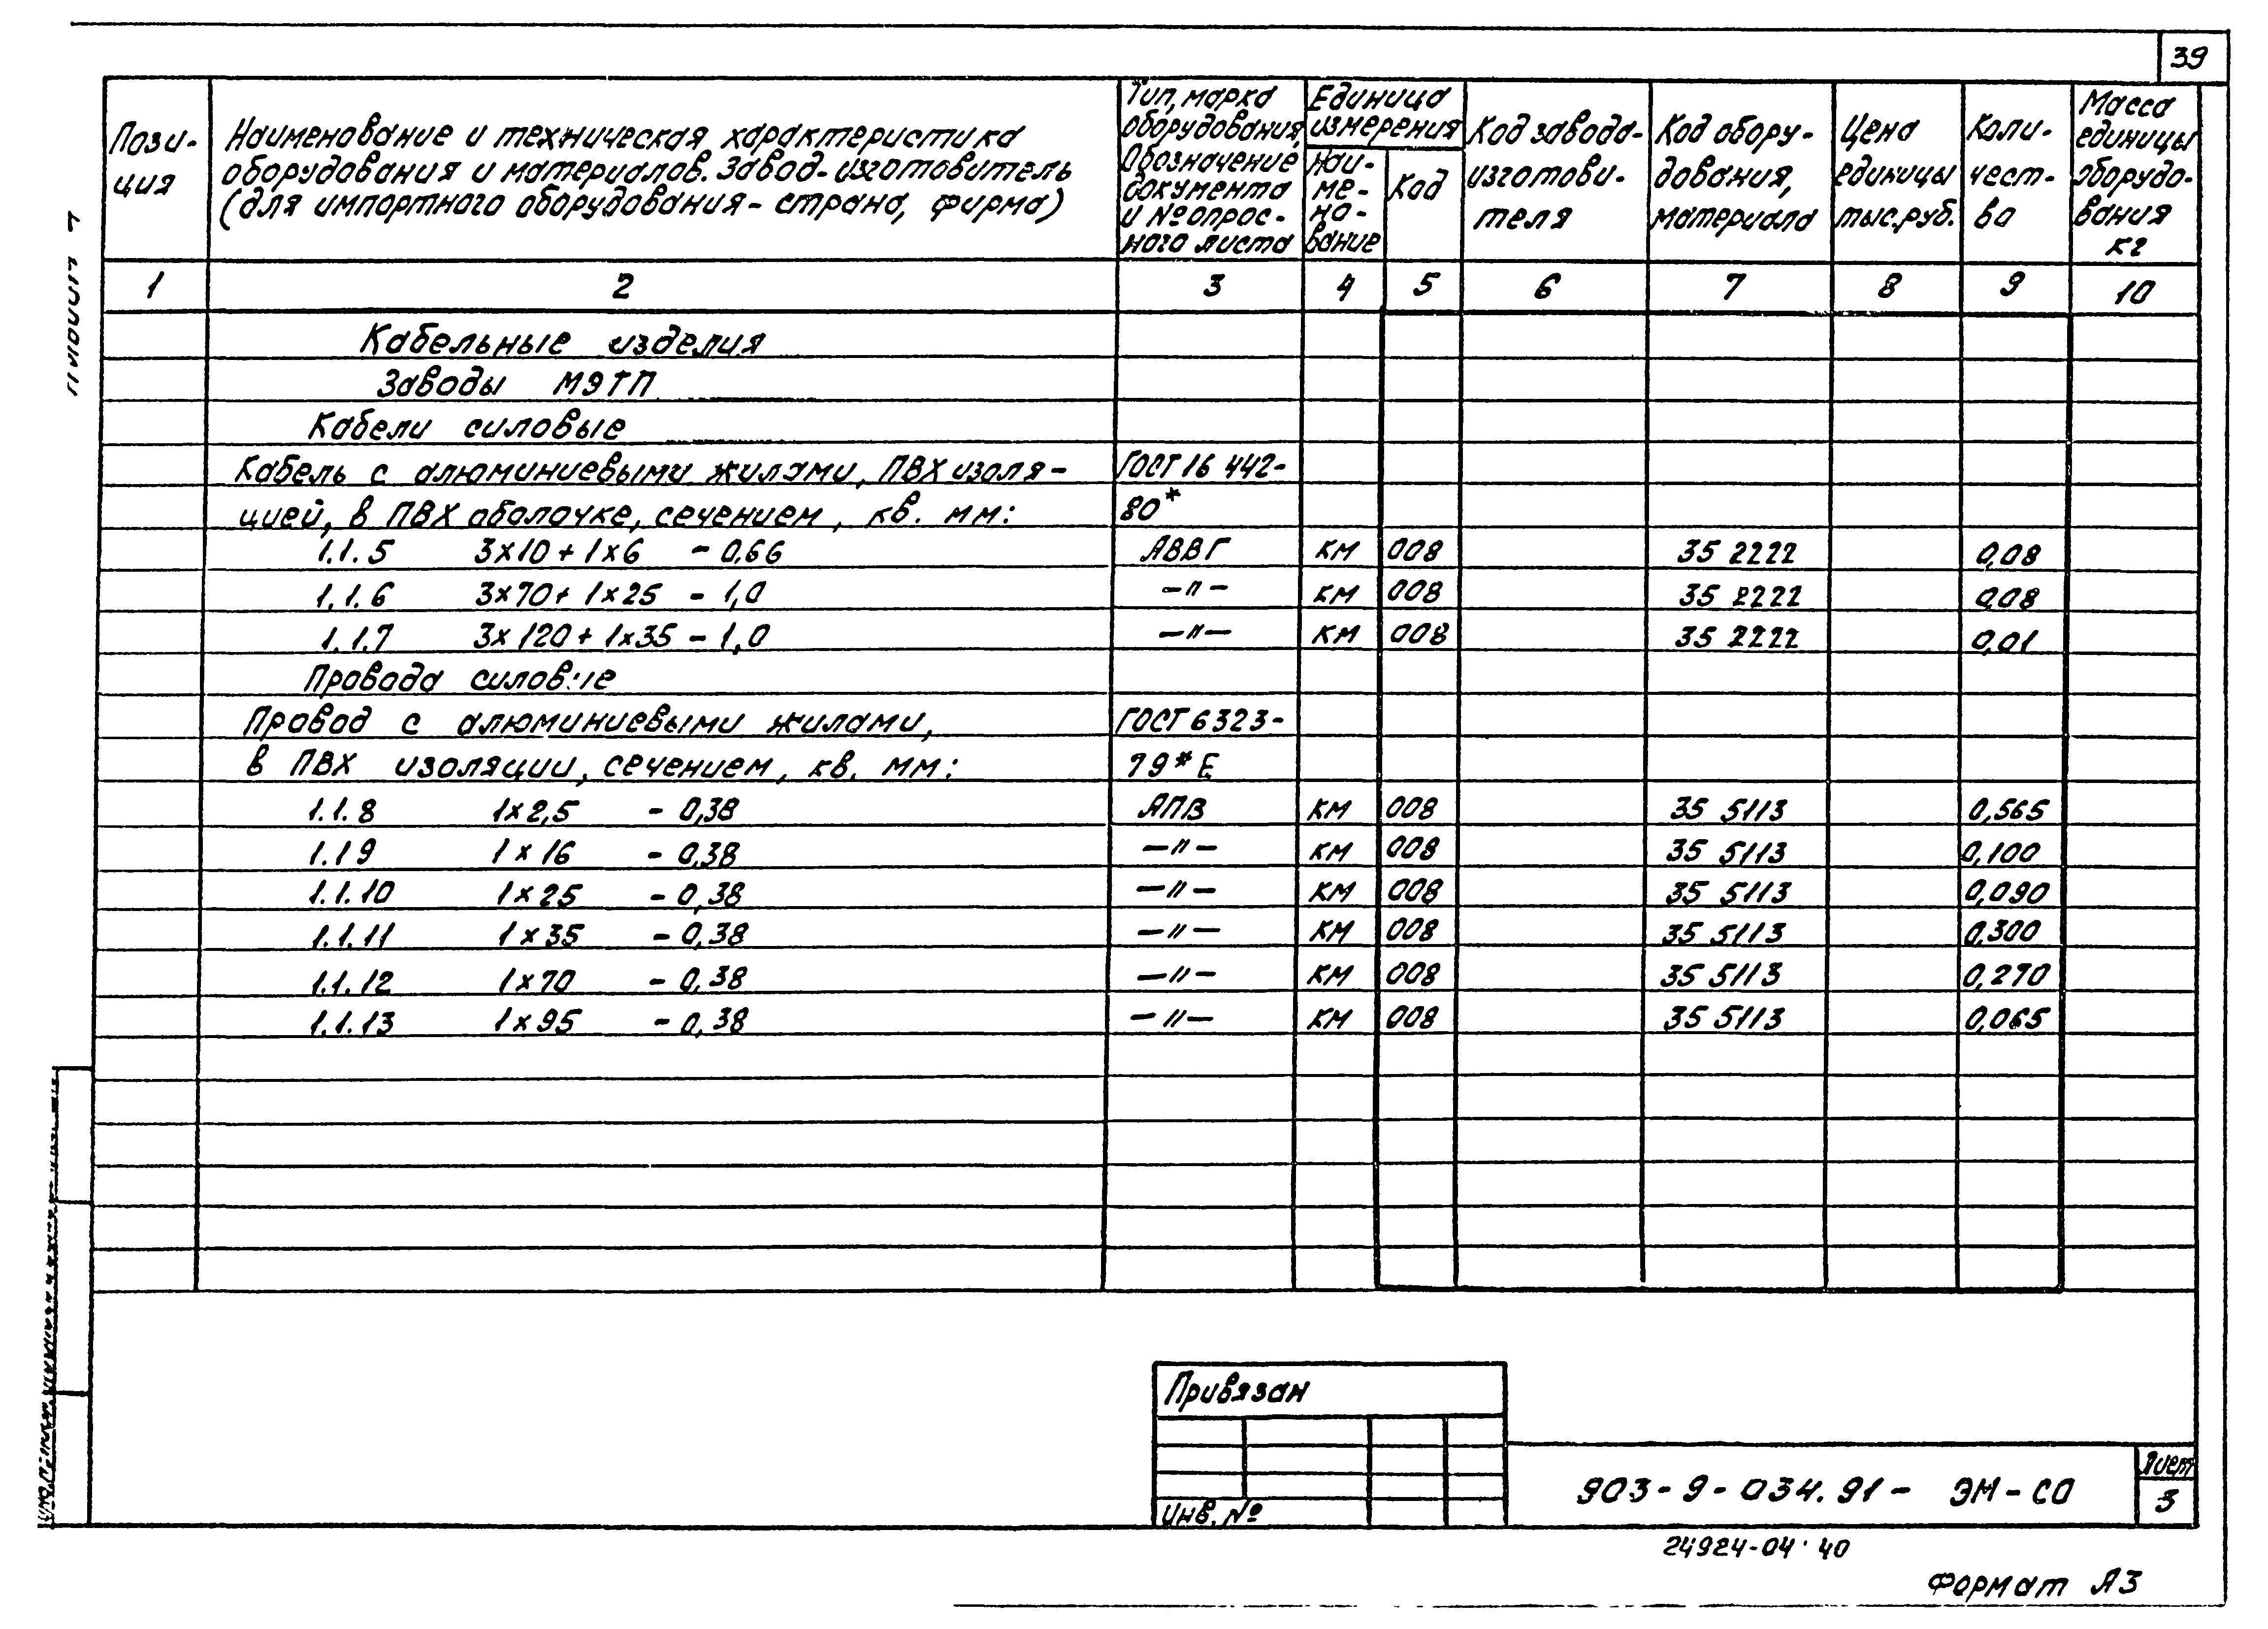 39
Пози-
ция
Наименование и техническая характеристика
оборудования и материалов. Завод-изготовитель
(для импортного оборудования - страна, фирма)
Тип, марка
оборудования,
Обозначение
документа
и № опрос-
ного листа
Единица
измерения
Наи-
ме-
но-
вание
Код
Код завода-
изготови-
теля
Код обору-
дования,
материала
Цена
единицы
тыс.руб.
Коли-
чест-
во
Масса
единицы
оборудо-
вания
кг
1 2 3 4 5 6 7 8 9 10
Кабельные изделия
Заводы МЭТП
Кабели силовые
Кабель с алюминиевыми жилами, ПВХ изоля- ГОСТ 16 442-
цией, в ПВХ оболочке, сечением, кв. мм: 80*
1.1.5 3х10 + 1х6 - 0,66 АВВГ км 008 35 2222 0,08
1.1.6 3х70 + 1х25 - 1,0 —"— км 008 35 2222 0,08
1.1.7 3х120 + 1х35 - 1,0 —"— км 008 35 2222 0,01
Провода силовые
Провод с алюминиевыми жилами, ГОСТ 6323-
в ПВХ изоляции, сечением, кв. мм: 79* Е
1.1.8 1х2,5 - 0,38 АПВ км 008 35 5113 0,565
1.1 9 1х16 - 0,38 —"— км 008 35 5113 0,100
1.1.10 1х25 - 0,38 —"— км 008 35 5113 0,090
1.1.11 1х35 - 0,38 —"— км 008 35 5113 0,300
1.1.12 1х70 - 0,38 —"— км 008 35 5113 0,270
1.1.13 1х95 - 0,38 —"— км 008 35 5113 0,065
Привязан
Инв. №
903-9-034.91- ЭМ-СО
Лист
3
24924-04 40
Формат А3